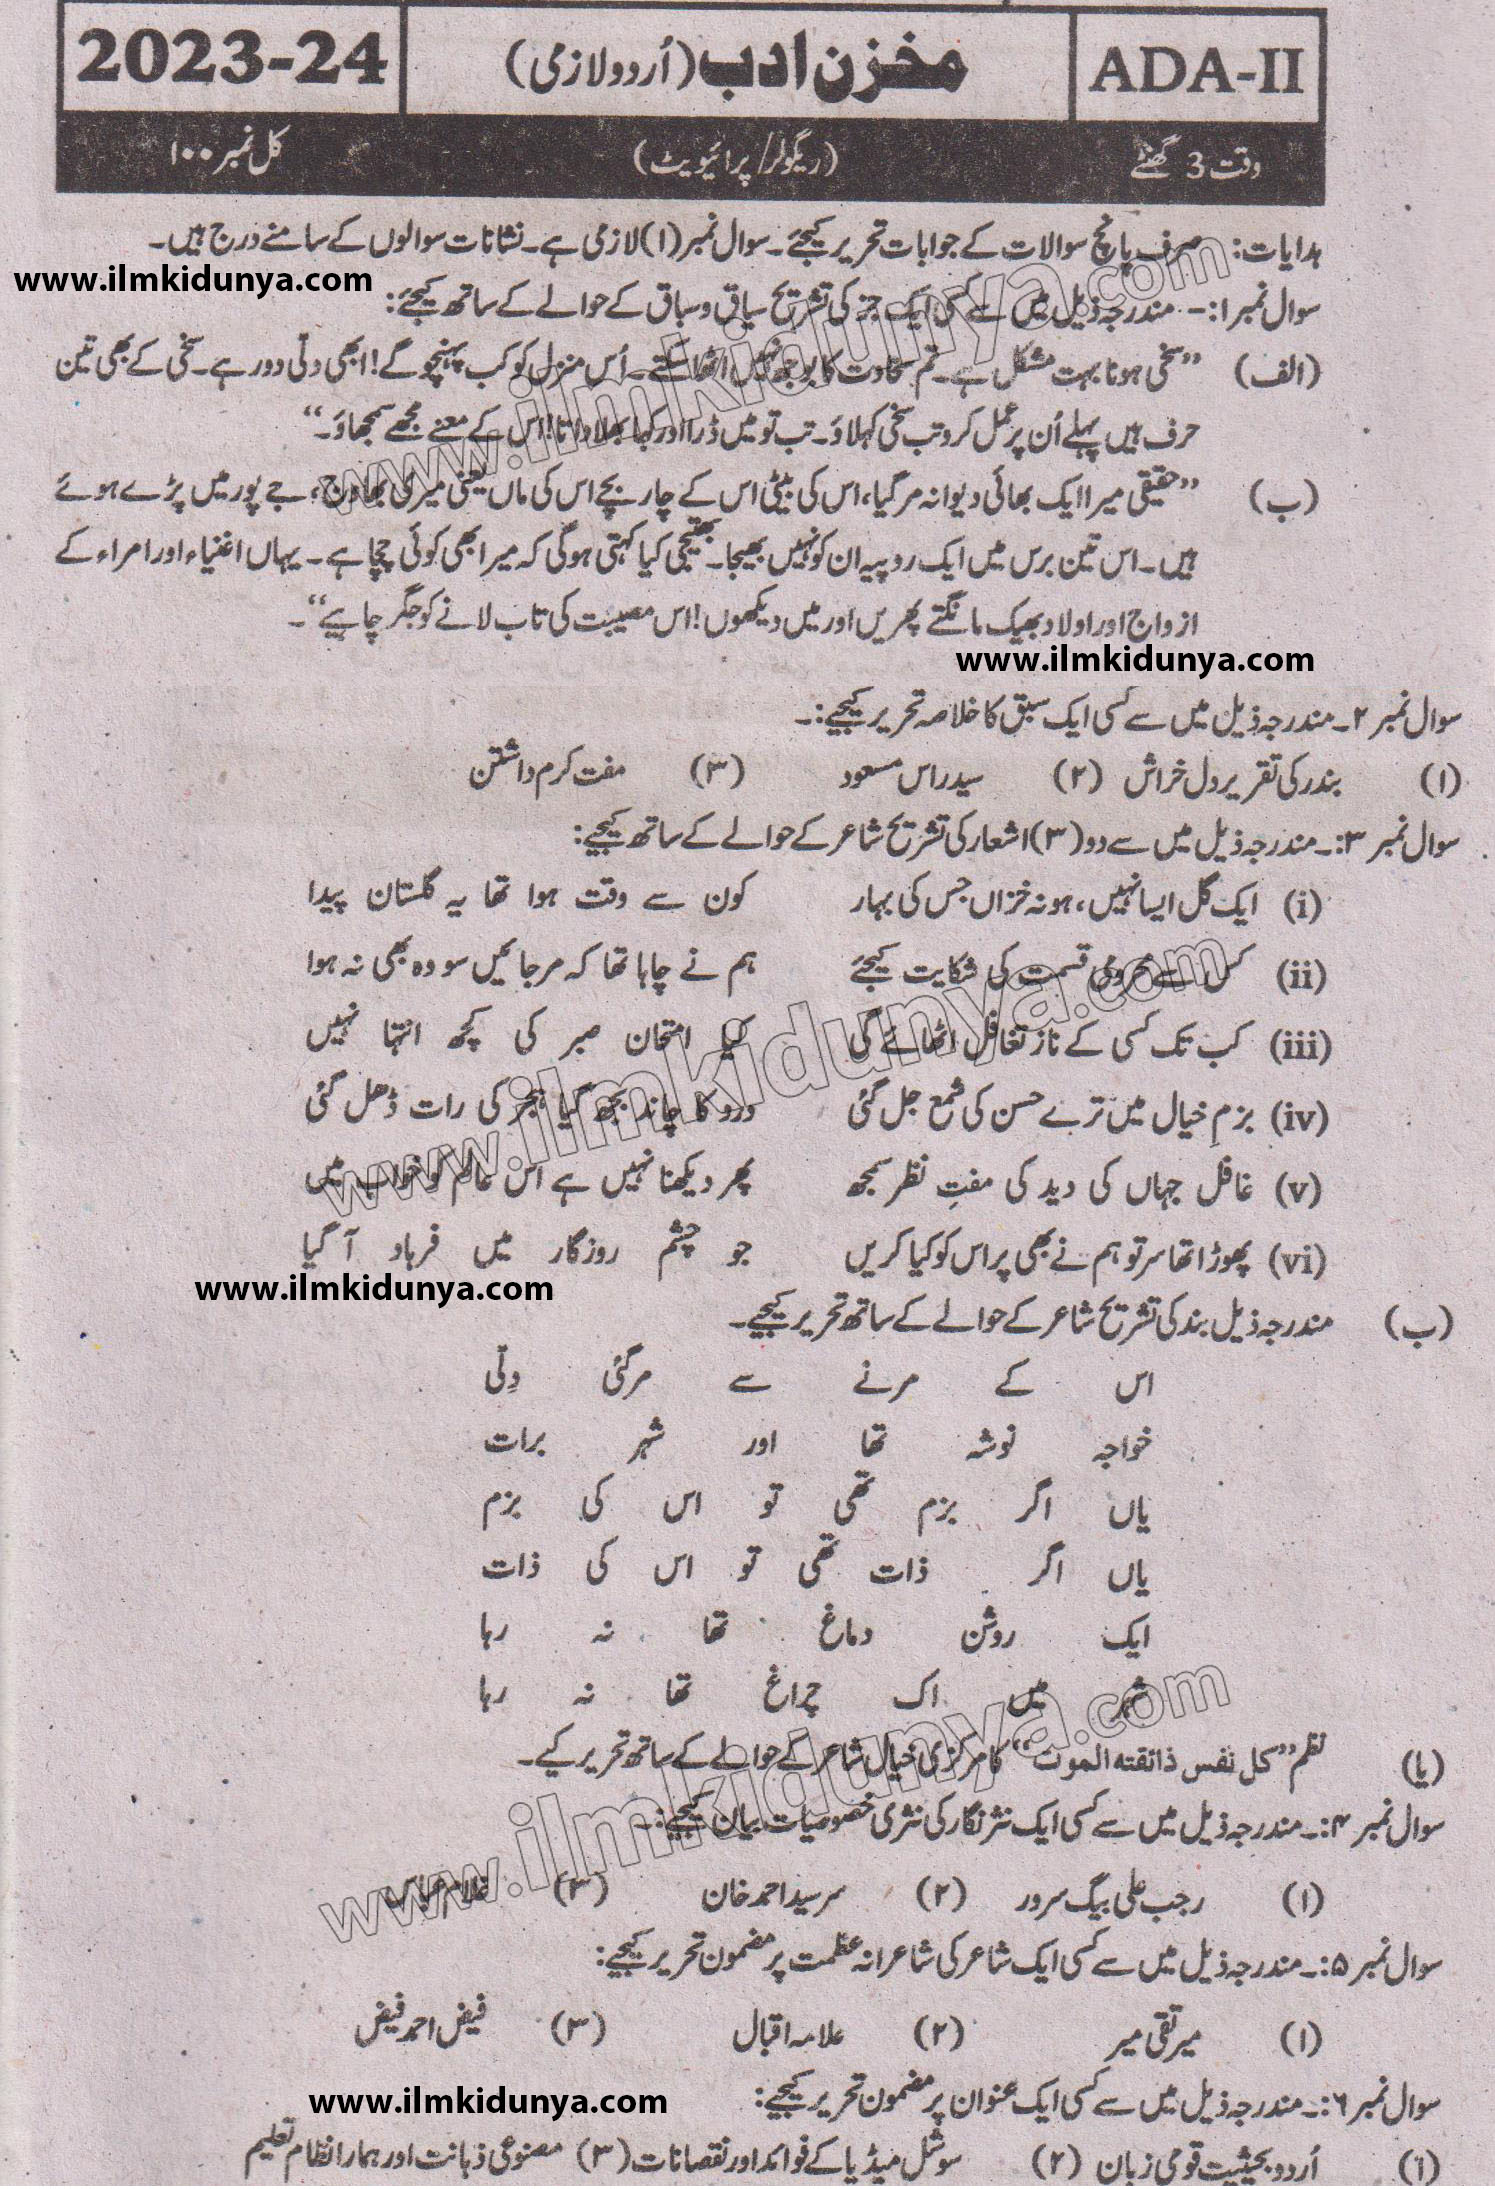 ADA-II
مخزن ادب (اُردو لازمی)
2023-24
وقت 3 گھنٹے
(ریگولر/ پرائیویٹ)
کل نمبر ۱۰۰
ہدایات: صرف پانچ سوالات کے جوابات تحریر کیجئے۔ سوال نمبر (۱) لازمی ہے۔ نشانات سوالوں کے سامنے درج ہیں۔
www.ilmkidunya.com
سوال نمبر ۱:- مندرجہ ذیل میں سے کسی ایک جز کی تشریح سیاق و سباق کے حوالے کے ساتھ کیجئے:
(الف) ”سخی ہونا بہت مشکل ہے۔ تم سخاوت کا بوجھ نہیں اٹھا سکتے۔ اُس منزل کو کب پہنچو گے! ابھی دلّی دور ہے۔ سخی کے بھی تین
حرف ہیں پہلے اُن پر عمل کرو تب سخی کہلاؤ۔ تب تو میں ڈرا اور کہا بھلا داتا! اس کے معنے مجھے سمجھاؤ۔“
(ب) ”حقیقی میرا ایک بھائی دیوانہ مر گیا، اس کی بیٹی اس کے چار بچے اس کی ماں یعنی میری بھاوج، جے پور میں پڑے ہوئے
ہیں۔ اس تین برس میں ایک روپیہ ان کو نہیں بھیجا۔ بھتیجی کیا کہتی ہوگی کہ میرا بھی کوئی چچا ہے۔ یہاں اغنیاء اور امراء کے
ازواج اور اولاد بھیک مانگتے پھریں اور میں دیکھوں! اس مصیبت کی تاب لانے کو جگر چاہیے“۔
www.ilmkidunya.com
سوال نمبر ۲۔ مندرجہ ذیل میں سے کسی ایک سبق کا خلاصہ تحریر کیجیے:۔
(۱) بندر کی تقریر دل خراش (۲) سید راس مسعود (۳) مفت کرم داشتن
سوال نمبر ۳:۔ مندرجہ ذیل میں سے دو (۳) اشعار کی تشریح شاعر کے حوالے کے ساتھ کیجیے:
(i) ایک گل ایسا نہیں، ہو نہ خزاں جس کی بہار کون سے وقت ہوا تھا یہ گلستان پیدا
(ii) کس سے محرومی قسمت کی شکایت کیجئے ہم نے چاہا تھا کہ مرجائیں سو وہ بھی نہ ہوا
(iii) کب تک کسی کے ناز تغافل اٹھائے گی کیا امتحان صبر کی کچھ انتہا نہیں
(iv) بزمِ خیال میں ترے حسن کی شمع جل گئی درد کا چاند بجھ گیا ہجر کی رات ڈھل گئی
(v) غافل جہاں کی دید کی مفتِ نظر سمجھ پھر دیکھنا نہیں ہے اس عالم کو خواب میں
(vi) پھوڑا تھا سر تو ہم نے بھی پر اس کو کیا کریں جو چشم روزگار میں فرہاد آ گیا
www.ilmkidunya.com
(ب) مندرجہ ذیل بند کی تشریح شاعر کے حوالے کے ساتھ تحریر کیجیے۔
اس کے مرنے سے مرگئی دلّی
خواجہ نوشہ تھا اور شہر برات
یاں اگر بزم تھی تو اس کی بزم
یاں اگر ذات تھی تو اس کی ذات
ایک روشن دماغ تھا نہ رہا
شہر میں اک چراغ تھا نہ رہا
(یا) نظم ”کل نفس ذائقتہ الموت“ کا مرکزی خیال شاعر کے حوالے کے ساتھ تحریر کیے۔
سوال نمبر ۴:۔ مندرجہ ذیل میں سے کسی ایک نثر نگار کی نثری خصوصیات بیان کیجیے:۔
(۱) رجب علی بیگ سرور (۲) سرسید احمد خان (۳) غلام عباس
سوال نمبر ۵:۔ مندرجہ ذیل میں سے کسی ایک شاعر کی شاعرانہ عظمت پر مضمون تحریر کیجیے:
(۱) میر تقی میر (۲) علامہ اقبال (۳) فیض احمد فیض
سوال نمبر ۶:۔ مندرجہ ذیل میں سے کسی ایک عنوان پر مضمون تحریر کیجیے:
www.ilmkidunya.com
(۱) اُردو بحیثیت قومی زبان (۲) سوشل میڈیا کے فوائد اور نقصانات (۳) مصنوعی ذہانت اور ہمارا نظام تعلیم
www.ilmkidunya.com
www.ilmkidunya.com
www.ilmkidunya.com